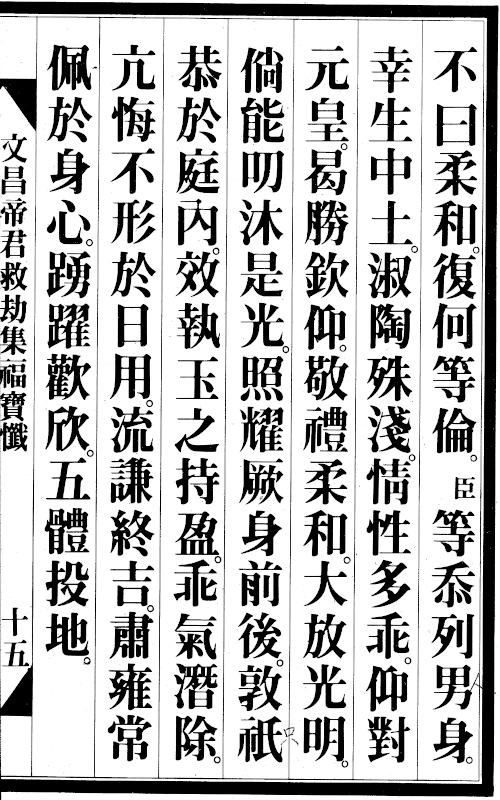 不曰柔和。復何等倫。臣等忝列男身。
幸生中土。淑陶殊淺。情性多乖。仰對
元皇。曷勝欽仰。敬禮柔和。大放光明。
倘能叨沐是光。照耀厥身前後。敦祇
恭於庭內。效執玉之持盈。乖氣潛除。
亢悔不形於日用。流謙終吉。肅雍常
佩於身心。踴躍歡欣。五體投地。
文昌帝君救劫集福寶懺
十五